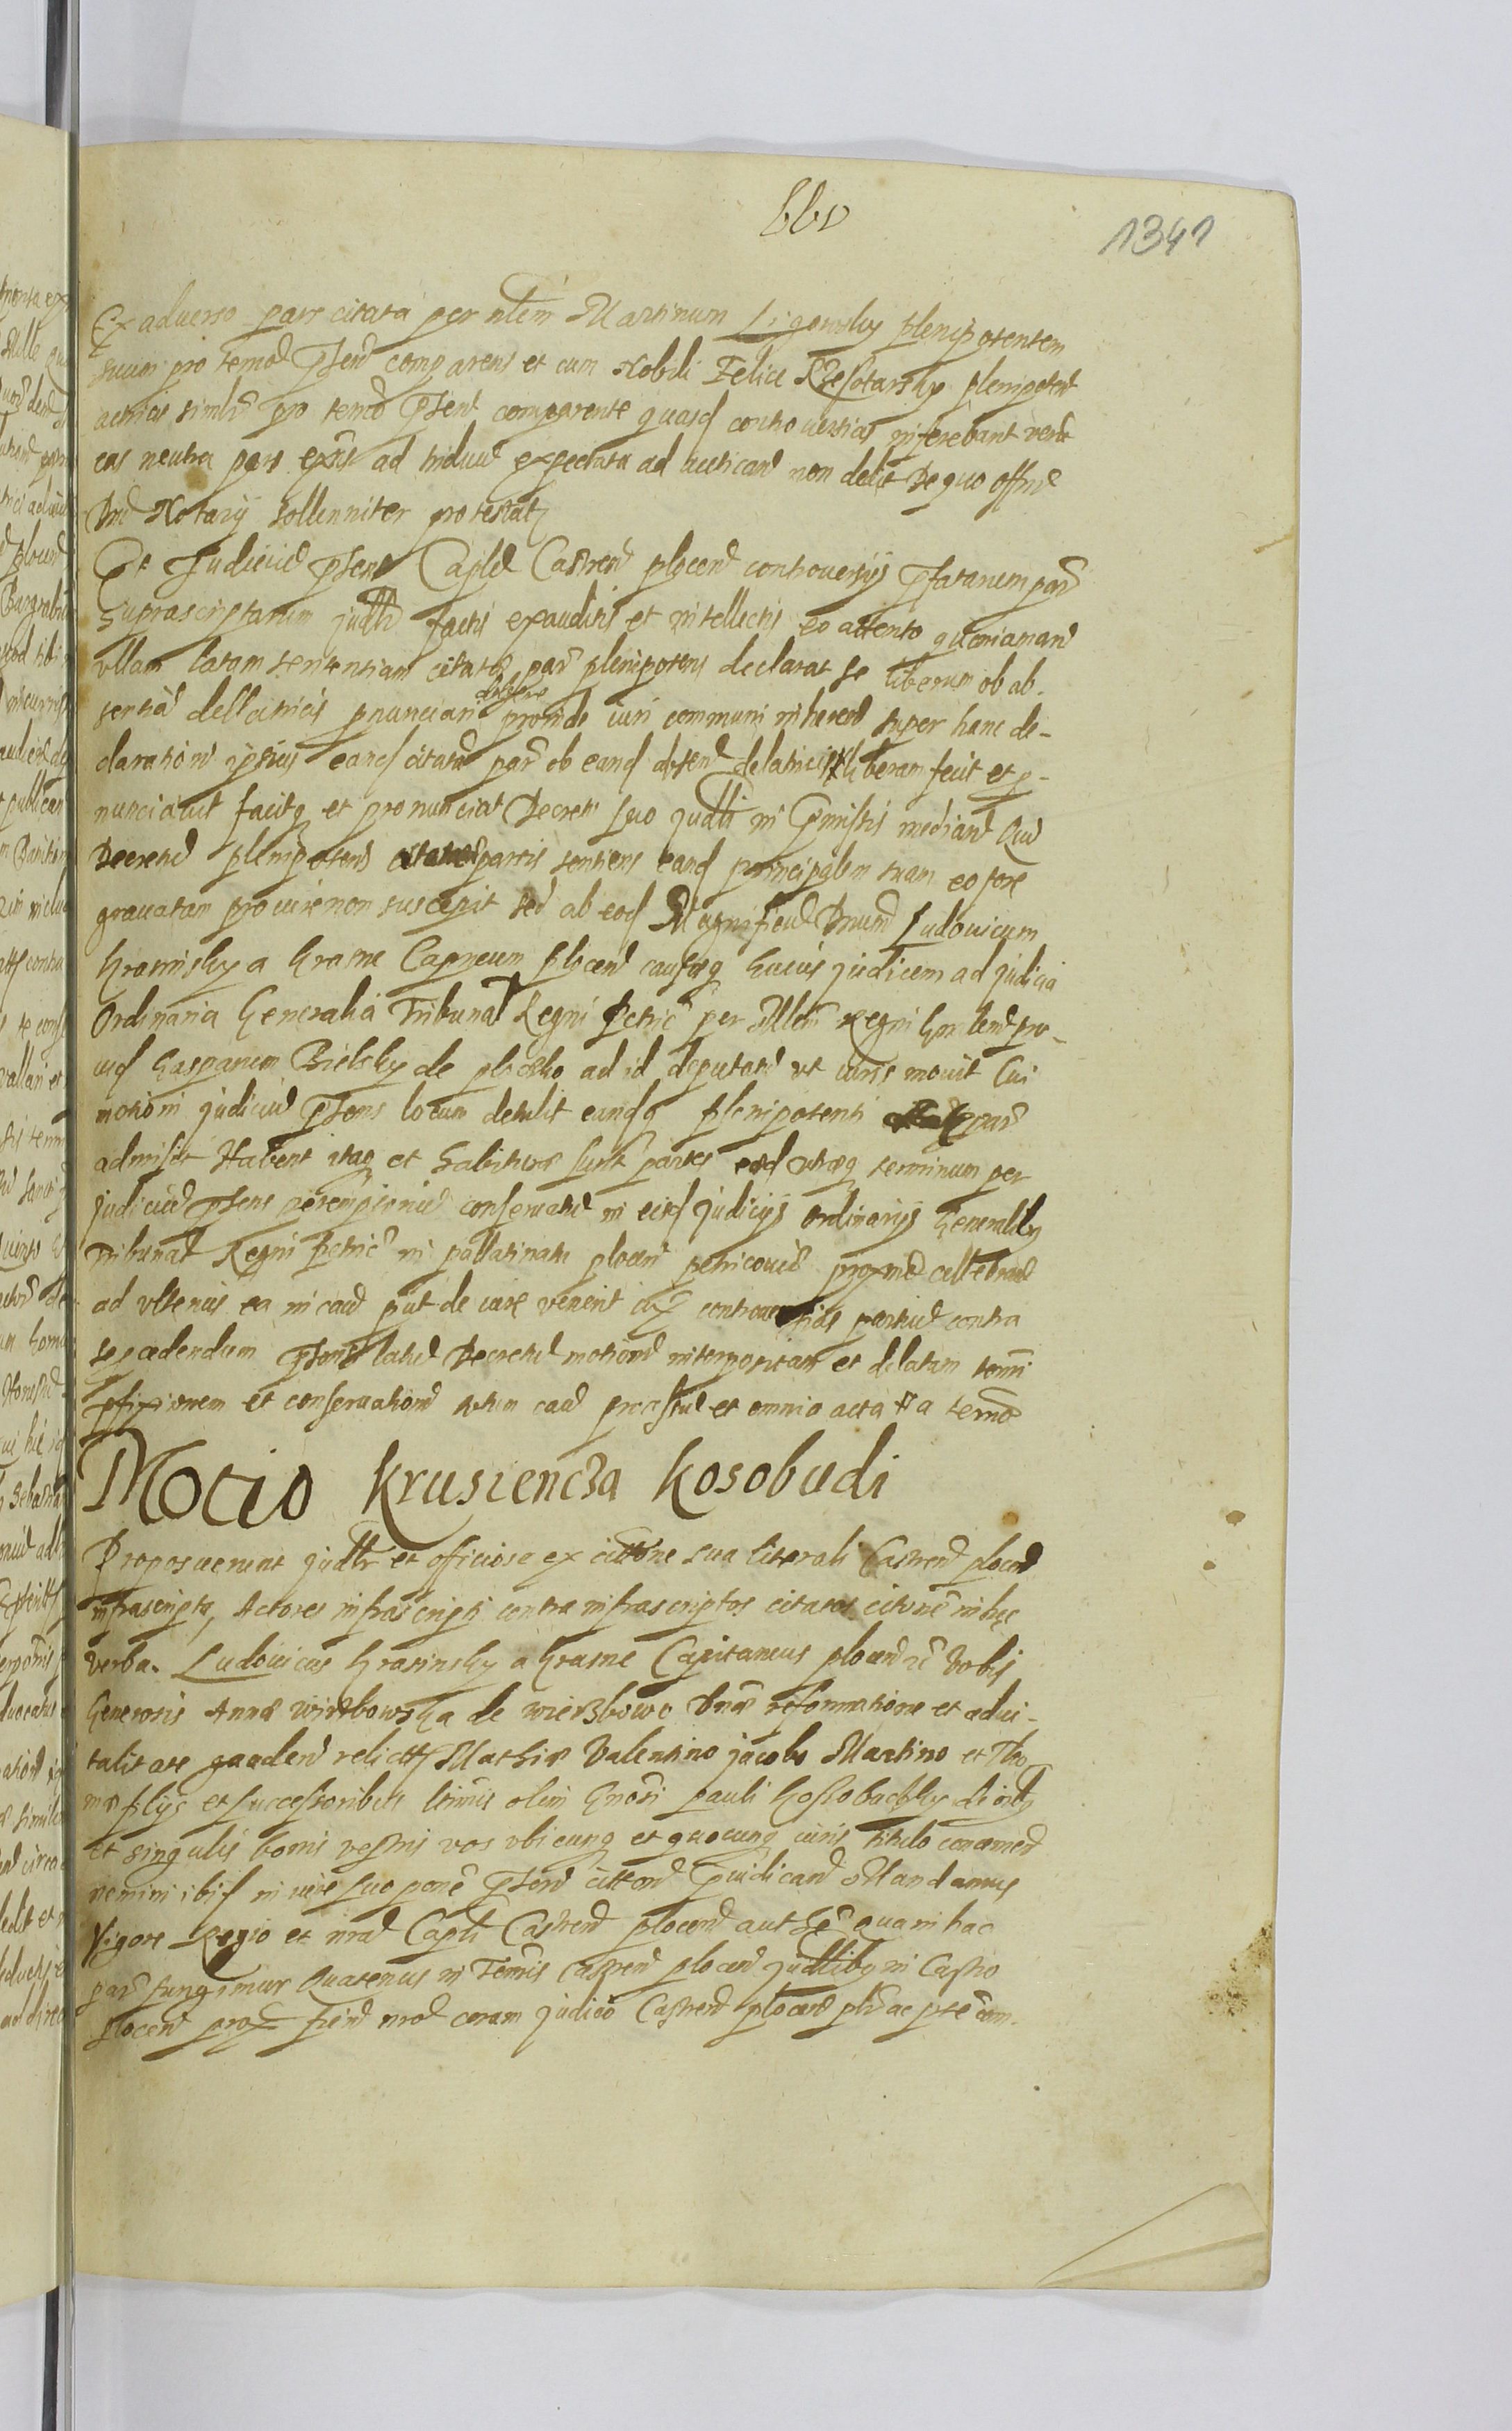 661
1341
Ex aduerso pars citata per nlem Martinum Ligowsky plenipotentem
suum pro termo pſen comparens et cum Nobili Felice plenipoten
actricis similr pro termo pſen comparente quasq controuersias inferebant verum
eas neutra pars expſis ad triduum expectata ad acticand non dedit De quo offm
Dni Notarij sollenniter protestatr
Et Judicium pſens Caple Castren plocen controuersijs pſatarum par
suprascriptarum judlr factis exauditis et intellectis eo attento quoniam
vllam latam sententiam citatæ par plenipotens declarat se liberum ob ab-
sentia dellatricis pnunciari debere proinde iuri communi inhærend super hanc de-
claration ipsius eand citatam par ob eand absen delatricis liberam fecit et p-
nunciauit facitq et pronunciat Decreti suo judlli in pmissis median Quod
Decretum plenipotens partis sentiens eand principalem suam eo fore
grauatam pro iure non suscepit sed ab eod Magnificum Dnum Ludouicum
Krasinsky a Krasne Capneum plocen causæq huius judicem ad judicia
Ordinaria Generalia Tribunal Regni Petric per Mltm Regni ter-
uid Gasparum Bielsky de ad id deputat vt iuris mouit Cui
motioni judicium pſens locum detulit eandq plenipotenti par
admisit Habent itaq et habituræ sunt partes eæd vtræq terminum per
judicium pſens peremptorium conseruatum in eisd judicijs ordinarijs Generalibq
Tribunal Regni Petric in pallatinatu plocen petricouiæ proxime cellebrand
ad vlterius ea in causa put de iure venerit iux controuersias partium contra
se procedendum pſenti latum Decretum motione interpositam et delatam termi
pfixionem et conseruatione totum caus processum et omnia acta ta termo
Motio Krusiencza Kosobudi
Proposuerunt judlr et officiose ex cittone sua literali Castren plocen
infrascripta, Actores infrascripti contra infrascriptos citatos citone in hęc
verba. Ludouicus Krasinsky a Krasne Capitaneus plocen &c Vobis
Generosis Annæ Wirzbowska de Wierzbowo Dnæ reformatione et adui-
talitate gauden relictæ Mathiæ Valentino jacobo Martino et Tho
mæ filijs et successoribus ltimis olim Gnosi pauli Kossobudsky de oibq
et singulis bonis vestris vos vbicunq et quocunq iuris titulo concernen
nemini ibid in iure suo pone pſen citton pjudicand Mandamus
Vigore Regio et nra Capli Castren plocen auth ę qua in hac
par fungimur Quatenus in Termis Castren plocen judllibq in Castro
plocen prox fiend nrod coram judicio Castren plocen plr ac pte com-